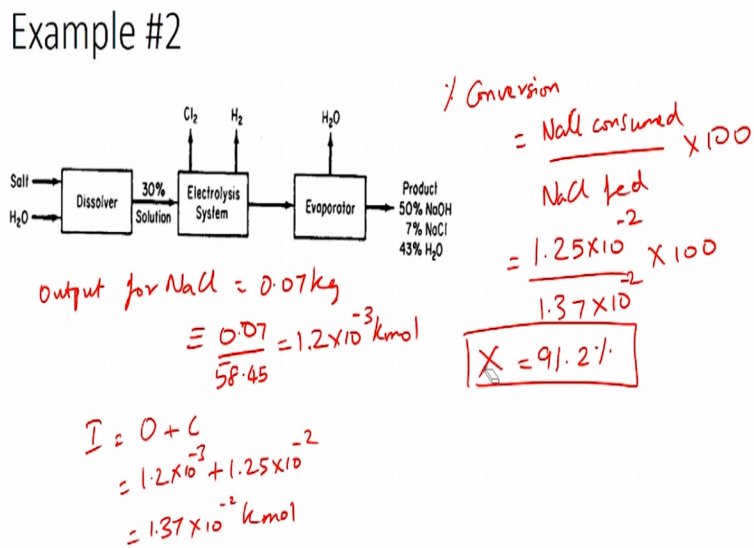 Example #2
Cl₂ H₂ H₂O
Salt
H₂O
Dissolver
30%
Solution
Electrolysis
System
Evaporator
Product
50% NaOH
7% NaCl
43% H₂O
Output for NaCl = 0.07kg
≡ 0.07/58.45 = 1.2×10⁻³ kmol
I = O + C
= 1.2×10⁻³ + 1.25×10⁻²
= 1.37×10⁻² kmol
% Conversion
= NaCl consumed
× 100
NaCl fed
= 1.25×10⁻² × 100
1.37×10⁻²
X = 91.2%